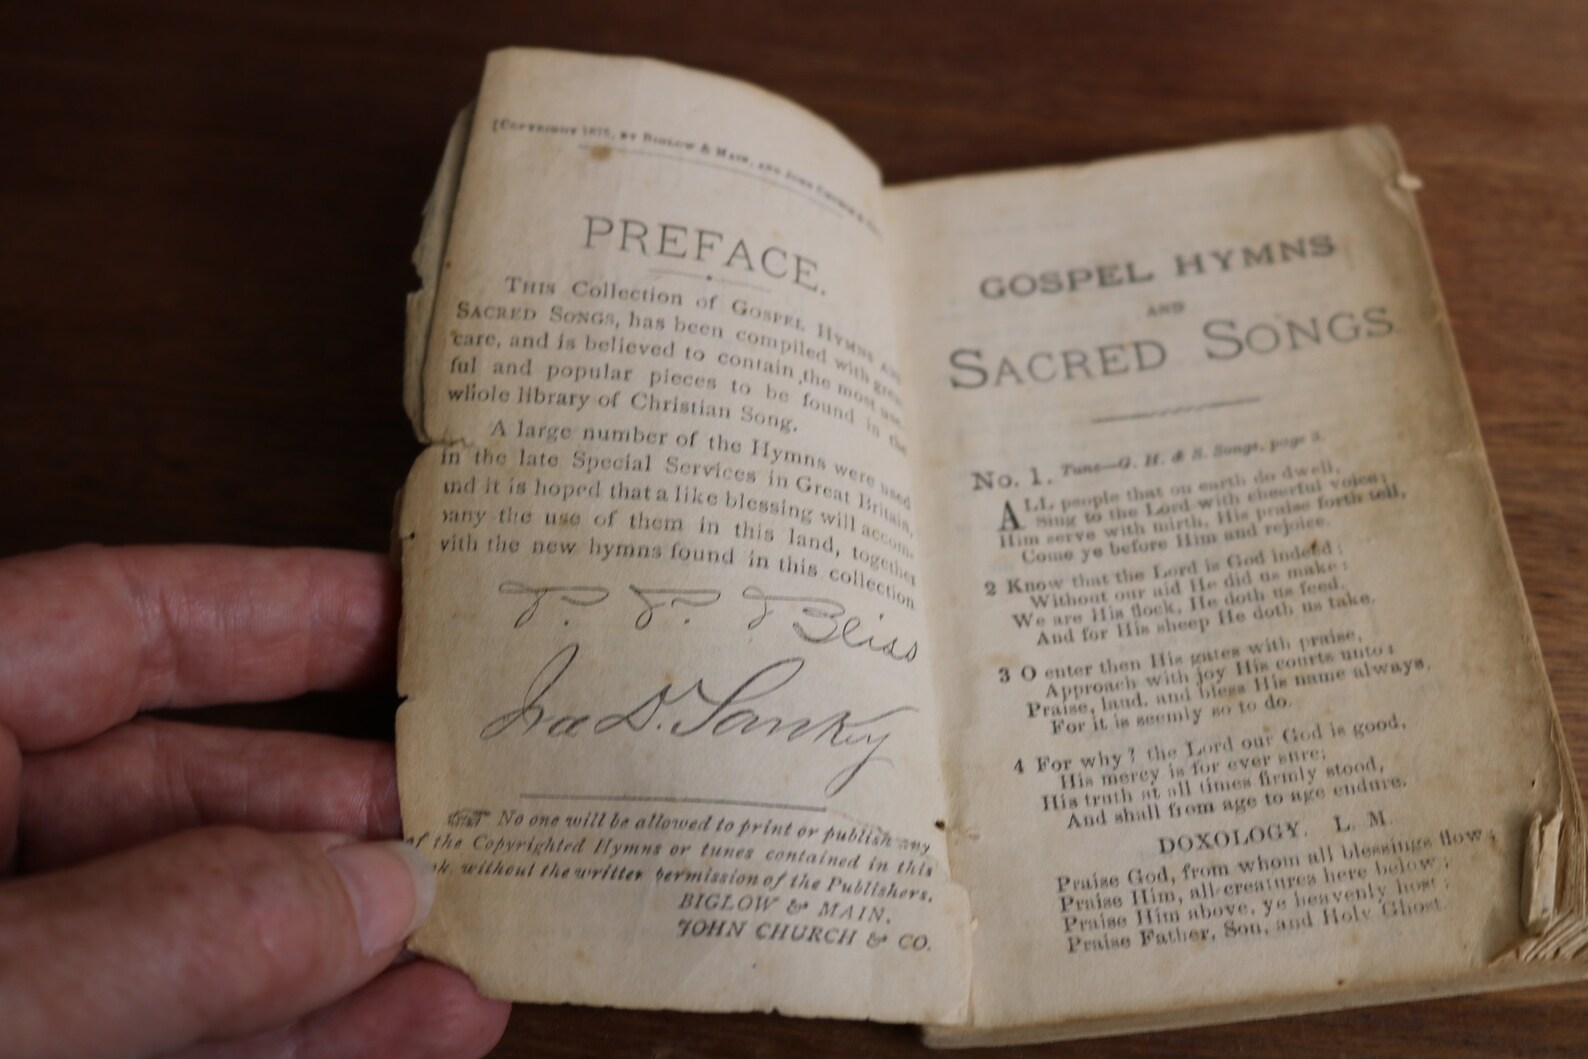 [COPYRIGHT 1875, BY BIGLOW & MAIN, AND JOHN CHURCH &
PREFACE.
THIS Collection of GOSPEL HYMNS AND
SACRED SONGS, has been compiled with great
care, and is believed to contain the most use-
ful and popular pieces to be found in the
whole library of Christian Song.
A large number of the Hymns were used
in the late Special Services in Great Britain,
and it is hoped that a like blessing will accom-
pany the use of them in this land, together
with the new hymns found in this collection
P. P. Bliss
Ira D. Sankey
No one will be allowed to print or publish any
of the Copyrighted Hymns or tunes contained in this
ok, without the written permission of the Publishers.
BIGLOW & MAIN,
JOHN CHURCH & CO.
GOSPEL HYMNS
AND
SACRED SONGS
No. 1. Tune—G. H. & S. Songs, page 3.
ALL people that on earth do dwell,
Sing to the Lord with cheerful voice;
Him serve with mirth, His praise forth tell,
Come ye before Him and rejoice.
2 Know that the Lord is God indeed;
Without our aid He did us make;
We are His flock, He doth us feed,
And for His sheep He doth us take.
3 O enter then His gates with praise,
Approach with joy His courts unto;
Praise, laud, and bless His name always,
For it is seemly so to do.
4 For why? the Lord our God is good,
His mercy is for ever sure;
His truth at all times firmly stood,
And shall from age to age endure.
DOXOLOGY. L. M.
Praise God, from whom all blessings flow;
Praise Him, all creatures here below;
Praise Him above, ye heavenly host;
Praise Father, Son, and Holy Ghost.